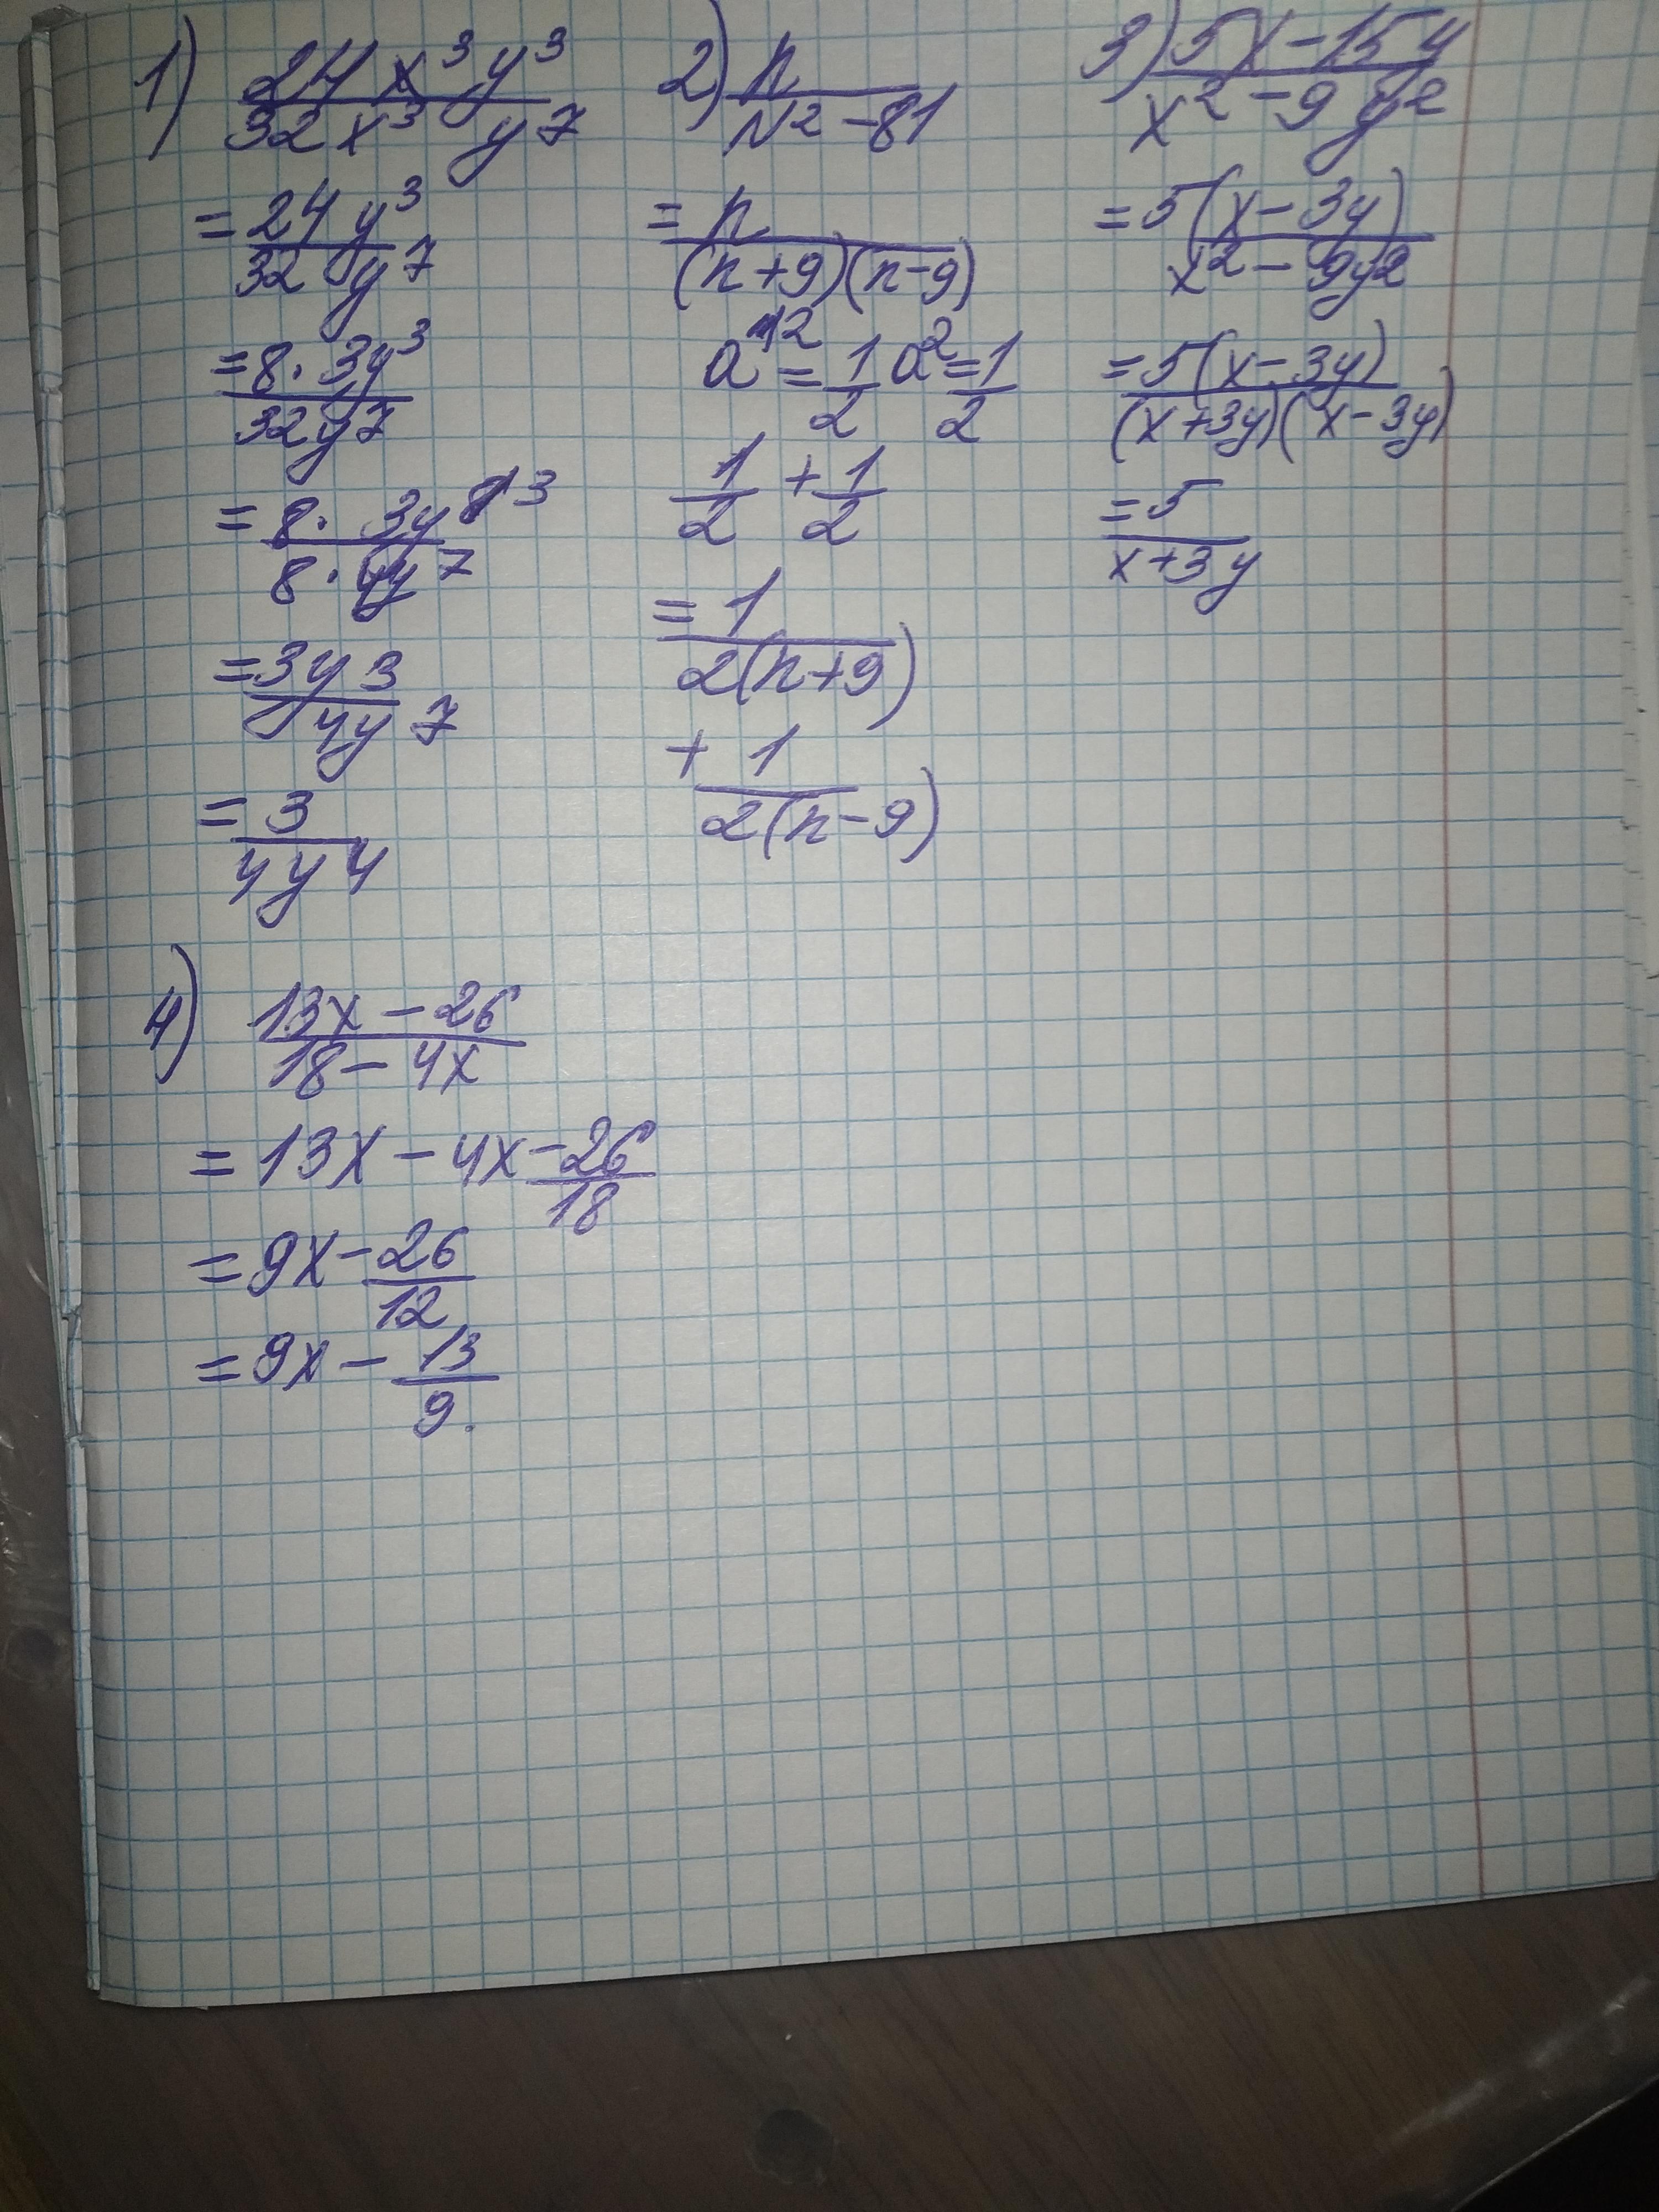 1) 24x³y³ / 32x³y7
= 24y³ / 32y7
= 8·3y³ / 32y7
= 8·3y3 / 8·4y7
= 3y3 / 4y7
= 3 / 4y4
2) n / N² - 81
= n / (n+9)(n-9)
a2 = 1/2 a² = 1/2
1/2 + 1/2
= 1 / 2(n+9)
+ 1 / 2(n-9)
3) 5x - 15y / x² - 9y²
= 5(x - 3y) / x² - 9y²
= 5(x - 3y) / (x+3y)(x-3y)
= 5 / x+3y
4) 13x - 26 / 18 - 4x
= 13x - 4x - 26/18
= 9x - 26/12
= 9x - 13/9.